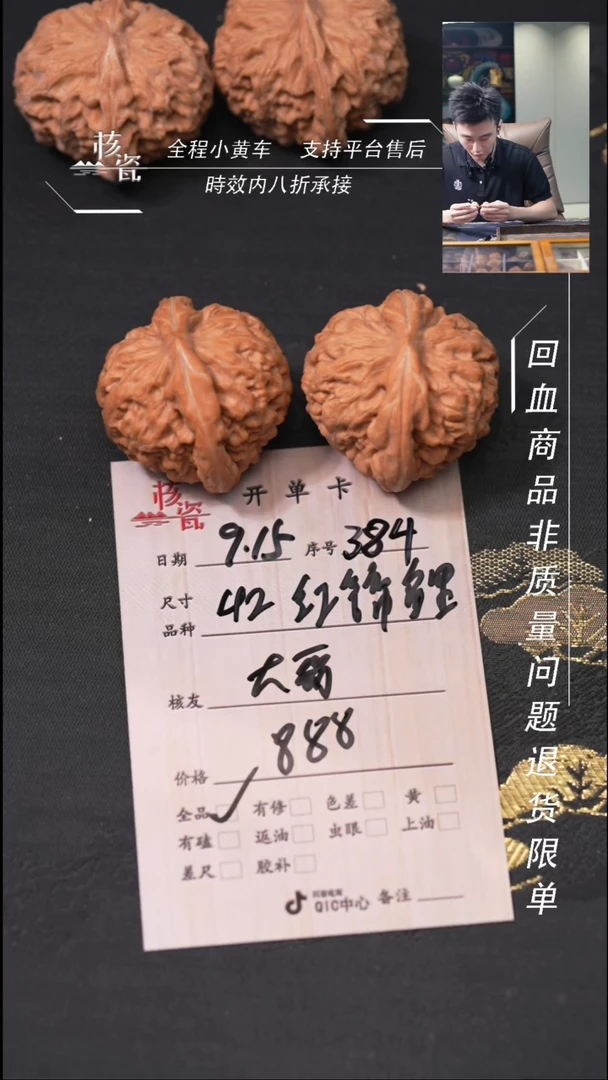 核瓷
全程小黄车 支持平台售后
時效内八折承接
回血商品非质量问题退货限单
核瓷 开单卡
日期 9.15 序号 384
尺寸 42 红锦鲤
品种
核友 大丽
价格 888
全品 ✓ 有修 色差 黄
有磕 返油 虫眼 上油
差尺 胶补
抖音电商
QIC中心 备注